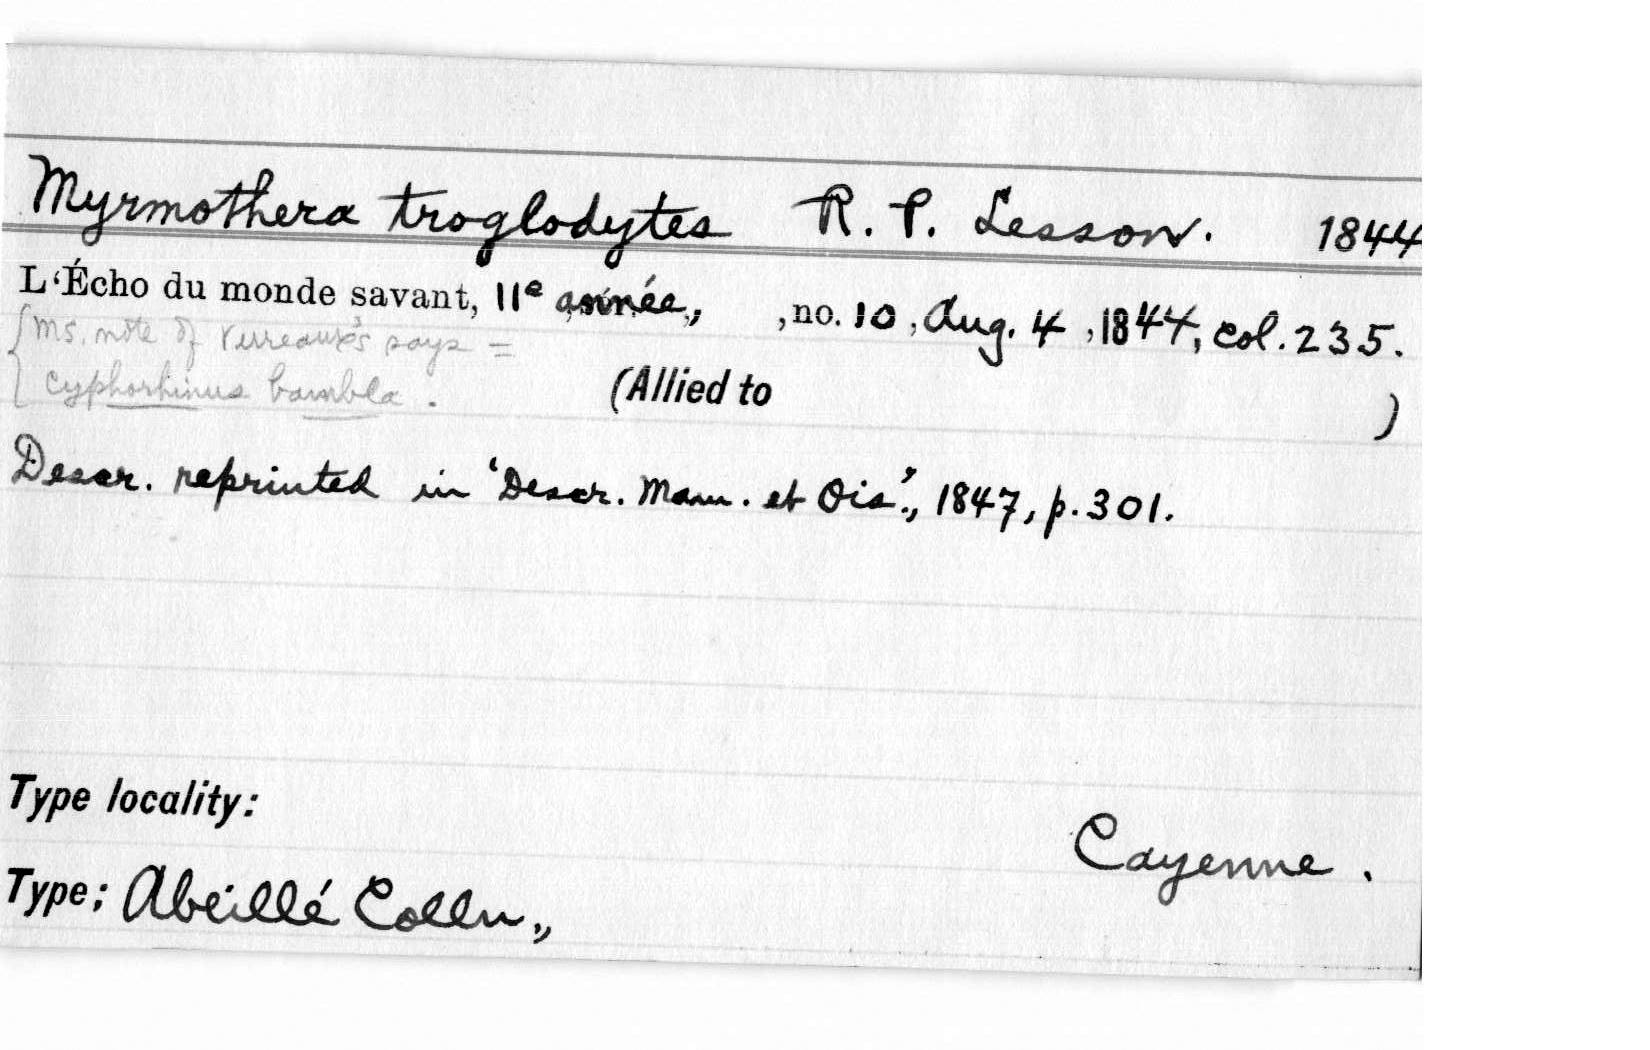 Myrmothera troglodytes R. P. Lesson. 1844
L'Écho du monde savant, 11e année, , no. 10, Aug. 4, 1844, col. 235.
Ms. note of Verreaux's says =
Cyphorhinus bambla.
(Allied to )
Descr. reprinted in 'Descr. Mam. et Ois.', 1847, p. 301.
Type locality:
Cayenne.
Type; Abeillé Colln.,